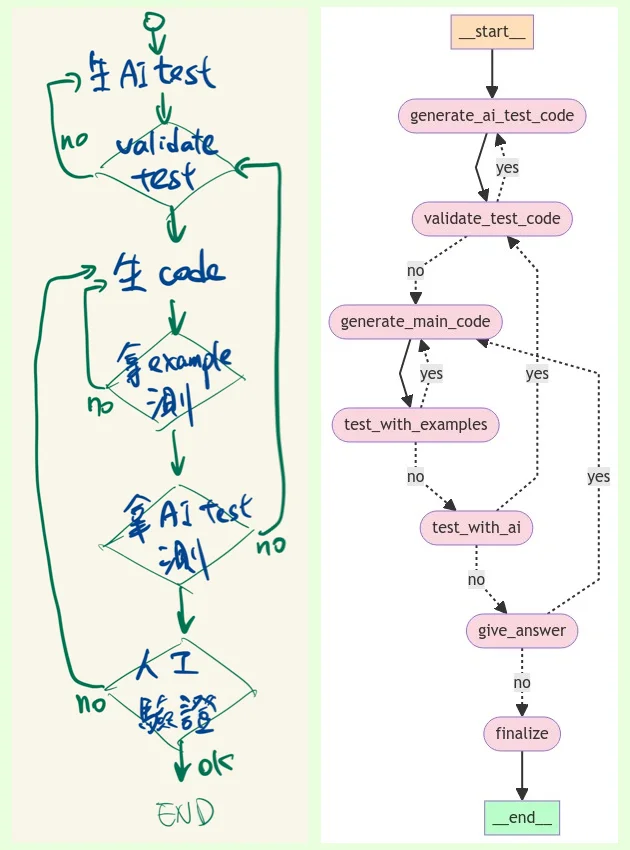 生 AI test
no
validate
test
生 code
拿 example
測
no
拿 AI test
測
no
人工
驗證
no
ok
END
__start__
generate_ai_test_code
yes
validate_test_code
no
generate_main_code
yes
yes
test_with_examples
no
yes
test_with_ai
no
give_answer
no
finalize
__end__